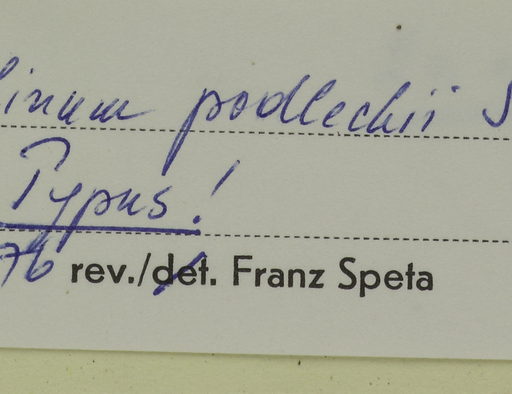 inum podlechii S
Typus!
76 rev./det. Franz Speta